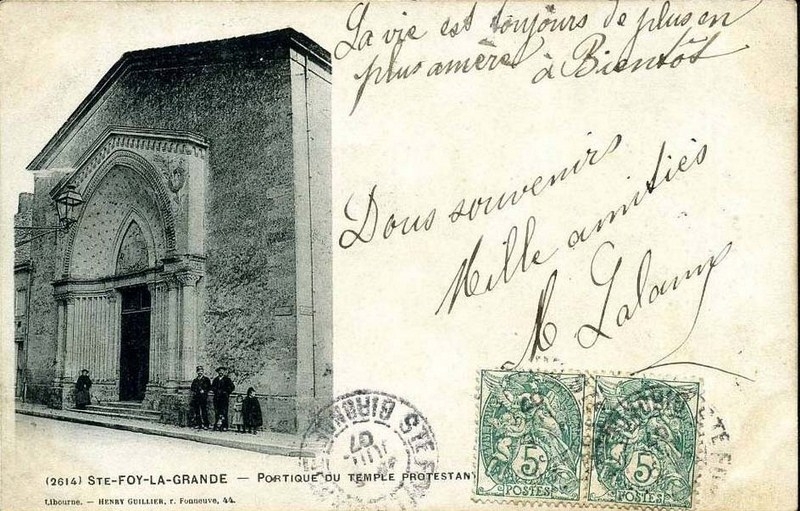 La vie est toujours de plus en
plus amère à Bientôt
Dous souvenirs
Mille amitiés
M
(2614) STE-FOY-LA-GRANDE — PORTIQUE DU TEMPLE PROTESTAN
Libourne. — HENRY GUILLIER, r. Fonneuve, 44.
5c
POSTES
5c
POSTES
STE FOY
GIRONDE
07
GIRONDE
STE FOY